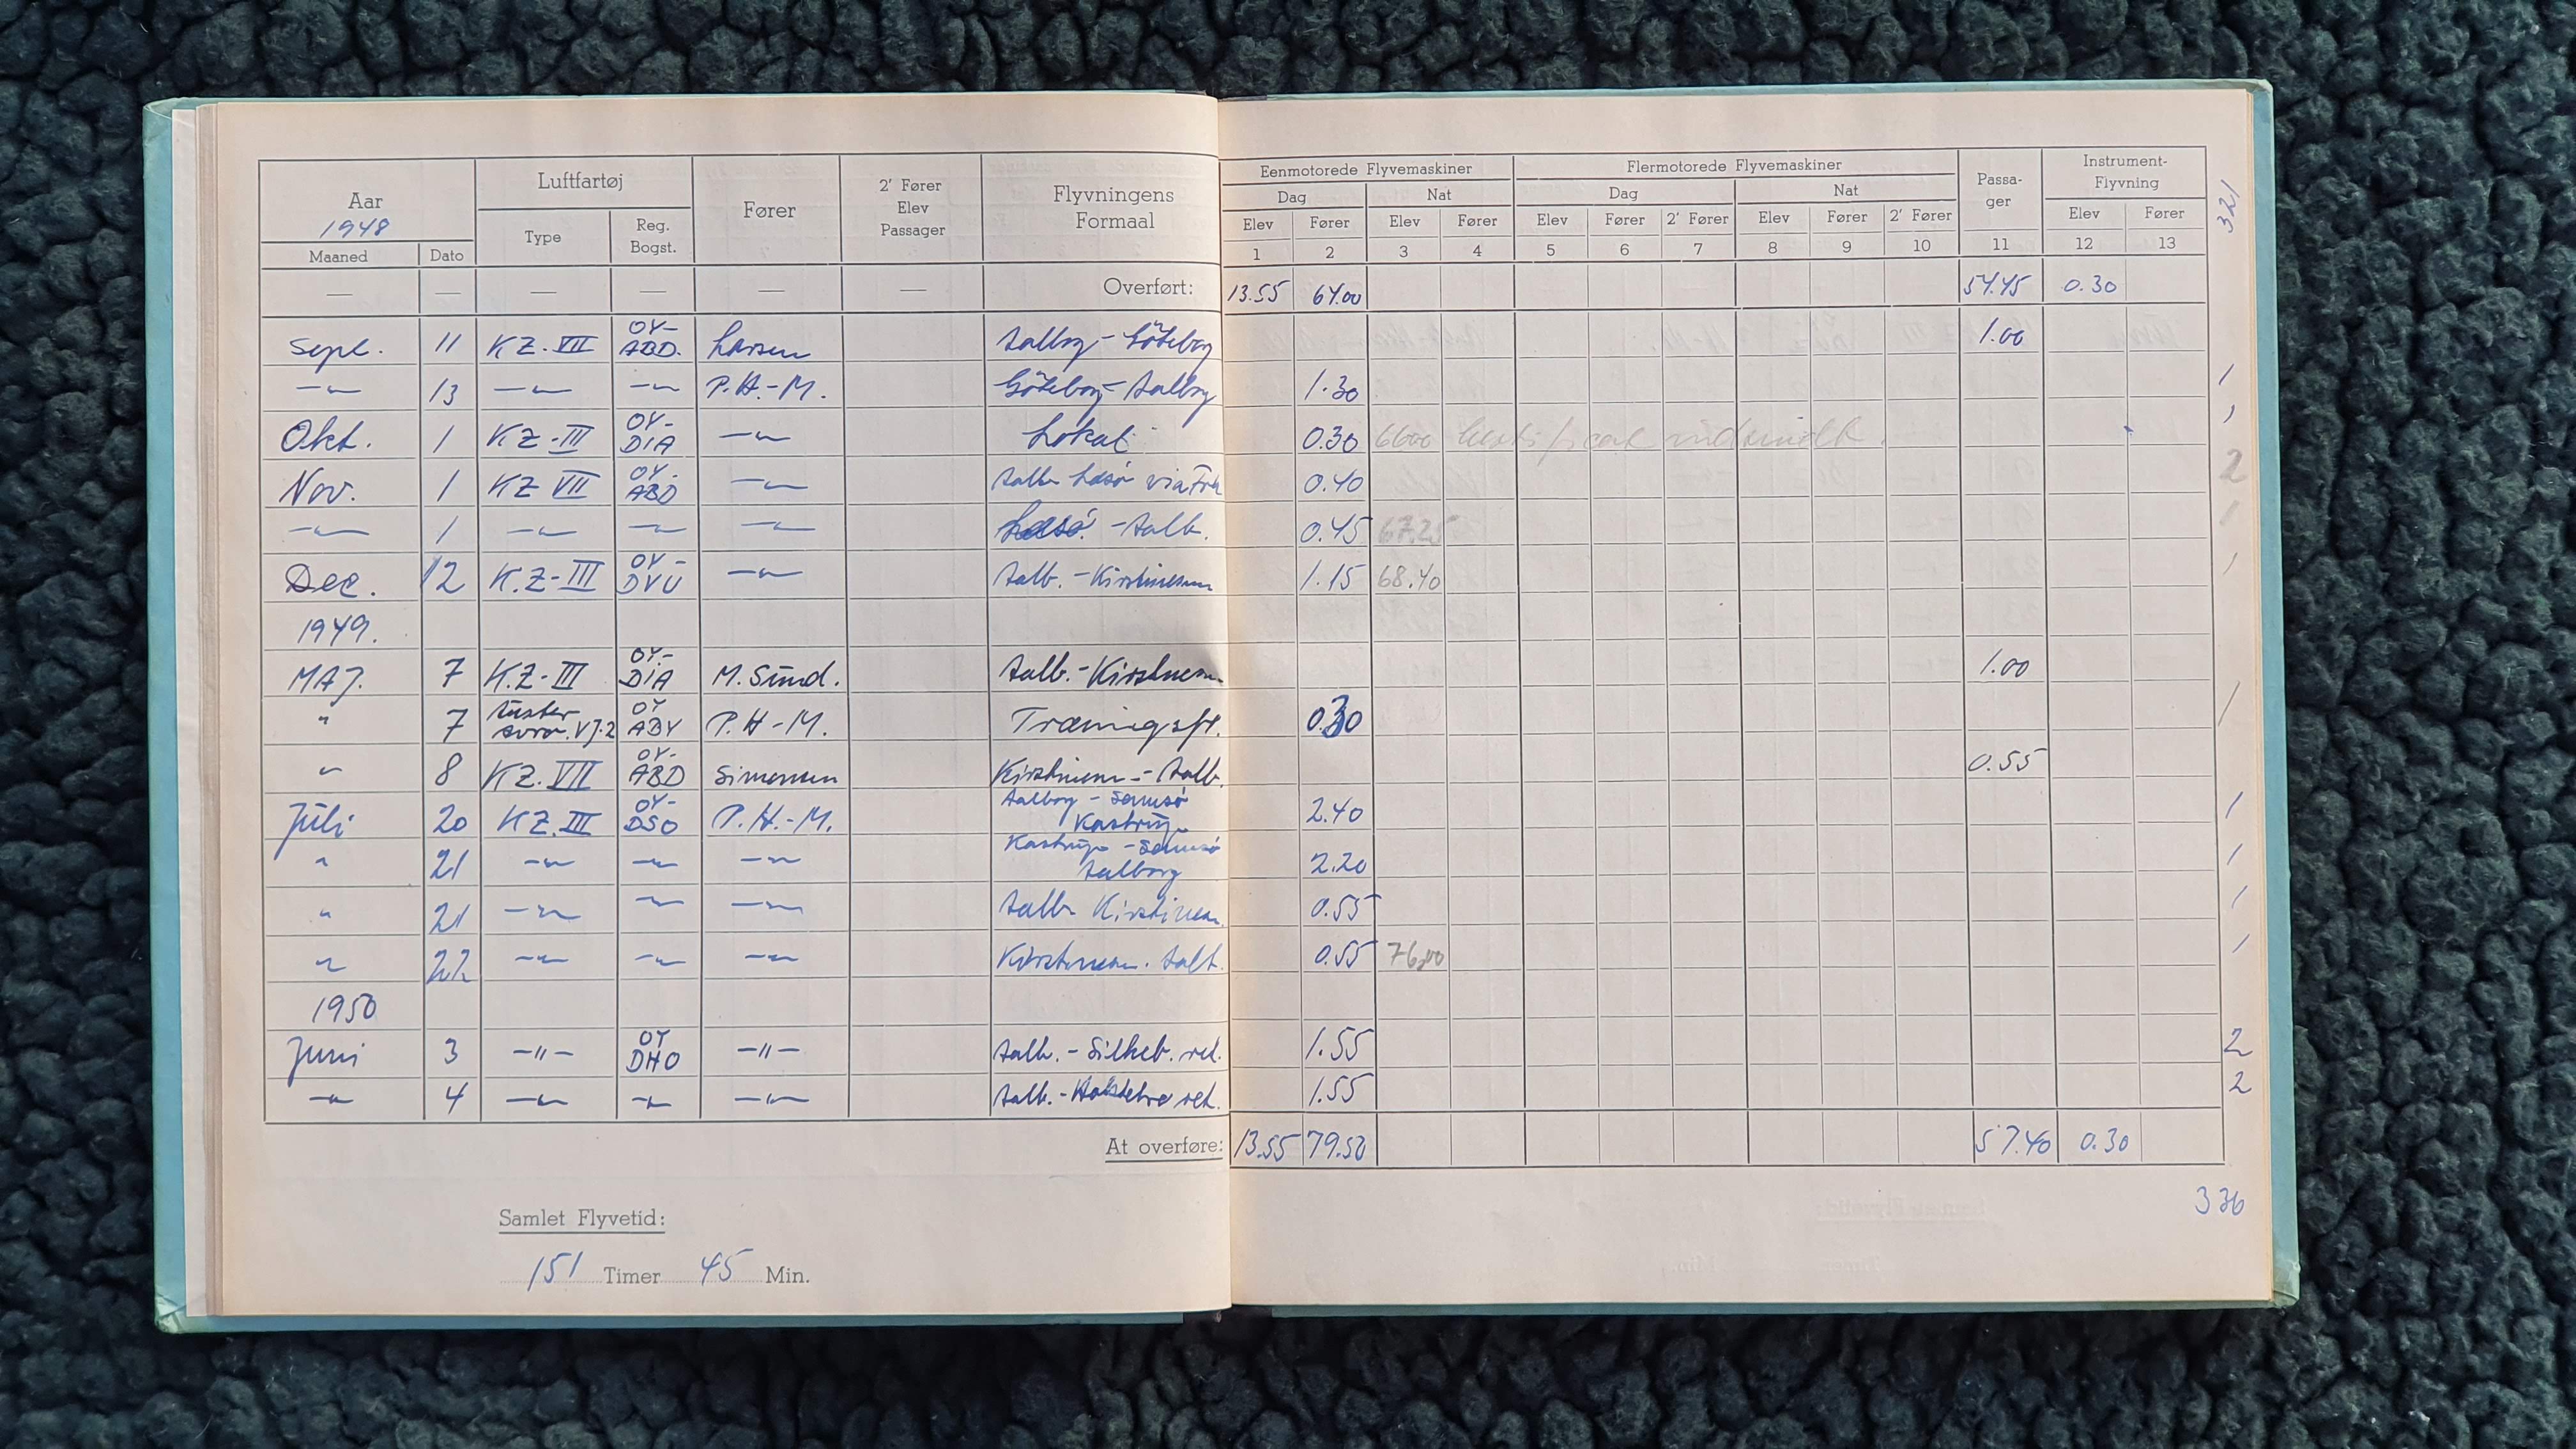 Aar 1948 Luftfartøj Fører 2' Fører Elev Passager Flyvningens Formaal Eenmotorede Flyvemaskiner Flermotorede Flyvemaskiner Passa-ger Instrument-Flyvning 321
Dag Nat Dag Nat
Maaned Dato Type Reg. Bogst. Elev Fører Elev Fører Elev Fører 2' Fører Elev Fører 2' Fører Elev Fører
1 2 3 4 5 6 7 8 9 10 11 12 13
— — — — — — Overført: 13.55 64.00 54.45 0.30
Sept. 11 KZ.VII OY-ABD. Larsen Aalborg - Göteborg 1.00
—"— 13 —"— —"— P.H.-M. Göteborg - Aalborg 1.30 1
Okt. 1 KZ-III OY-DIA —"— Lokal 0.30 6600 1
Nov. 1 KZ VII OY-ABD —"— Aalb Læsø via 0.40 2
—"— 1 —"— —"— —"— Læsø - Aalb. 0.45 67.25 1
Dec. 12 K.Z-III OY-DVU —"— Aalb. - 1.15 68.40 1
1949.
MAJ. 7 K.Z-III OY-DIA M. Sund. Aalb. - 1.00
" 7 Auster VJ.2 OY ABY P.H-M. Træningsfl. 0.30 1
" 8 KZ.VII OY-ABD Simonsen - Aalb. 0.55
Juli 20 KZ.III OY-DSO P.H.-M. Aalborg - Samsø Kastrup 2.40 1
" 21 —"— —"— —"— Kastrup - Samsø Aalborg 2.20 1
" 21 —"— —"— —"— Aalb 0.55 1
" 22 —"— —"— —"— Aalb. 0.55 76,00 1
1950
Juni 3 —"— OY DHO —"— Aalb. - Silkeb. ret. 1.55 2
—"— 4 —"— —"— —"— Aalb. - Holstebro ret. 1.55 2
At overføre: 13.55 79.50 57.40 0.30
336
Samlet Flyvetid:
151 Timer 45 Min.